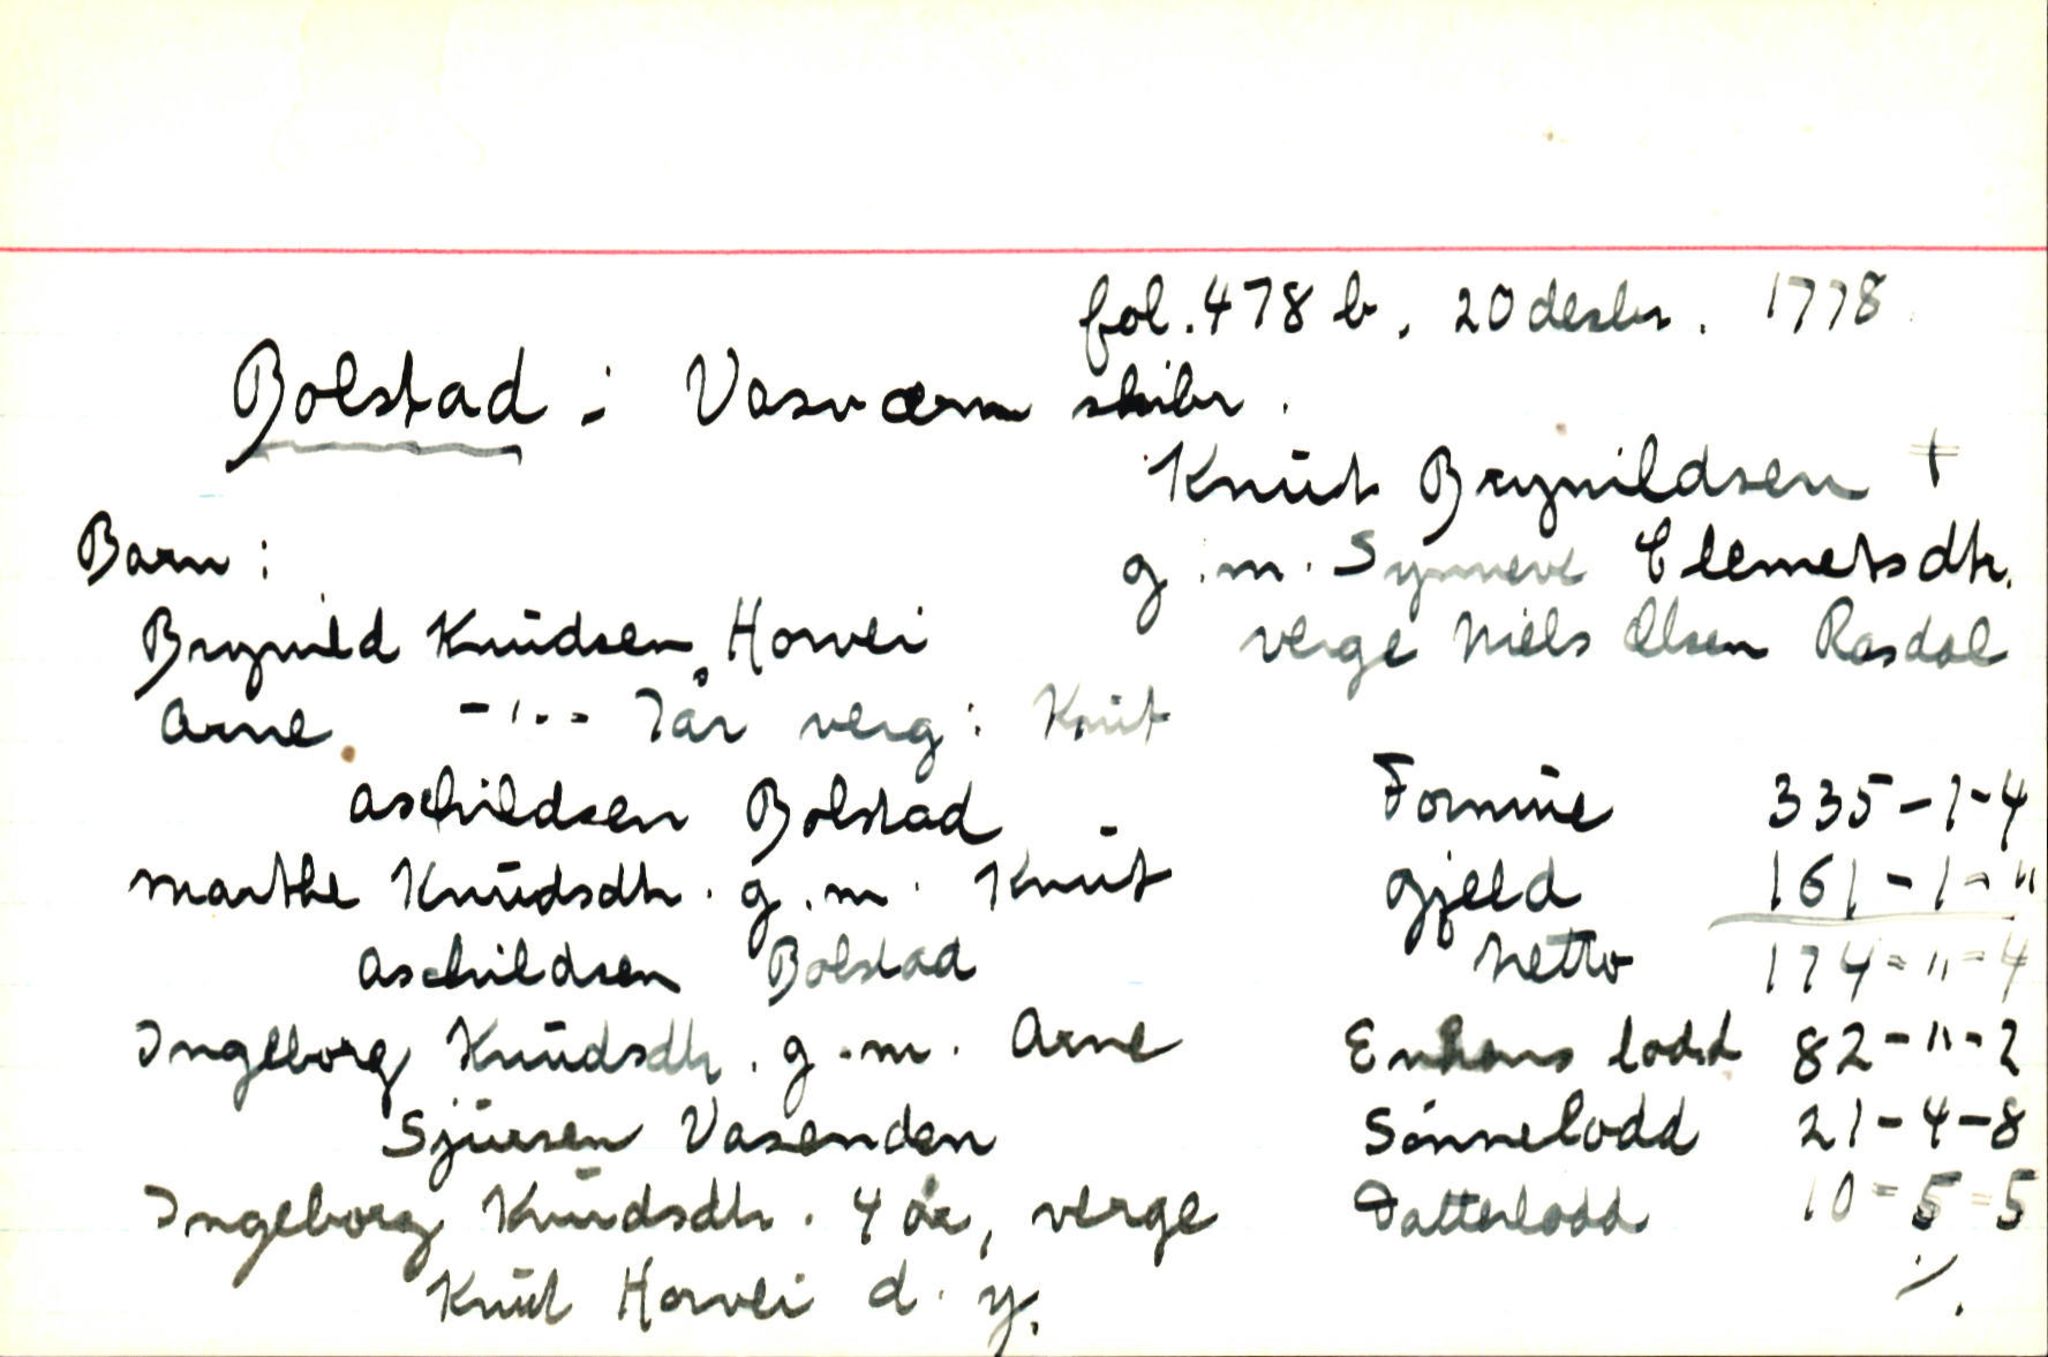 fol. 478 b. 20 desbr. 1778.
Bolstad i Vasværn skibr.
Knut Brynildsen +
g.m. Synneve Clemetsdtr.
verge Niels Olsen Rasdal
Barn:
Brynild Knudsen, Horvei
Arne -"- 7 år verg: Knut
Aschildsen Bolstad
Marthe Knudsdtr. g.m. Knut
Aschildsen Bolstad
Ingeborg Knudsdtr. g.m. Arne
Sjursen Vasenden
Ingeborg Knudsdtr. 4 år, verge
Knut Horvei d.y.
Formue 335-1-4
Gjeld 161-1-"
Netto 174-"-4
Enkens lodd 82-"-2
Sønnelodd 21-4-8
Datterlodd 10-5-5
./.